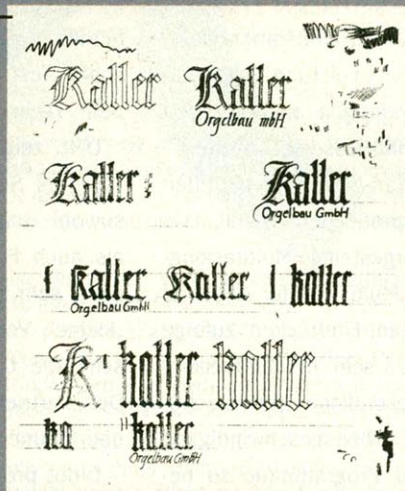 Kaller Kaller
Orgelbau mbH
Kaller Kaller
Orgelbau GmbH
Kaller Kaller kaller
Orgelbau GmbH
K kaller kaller
ka kaller
Orgelbau GmbH